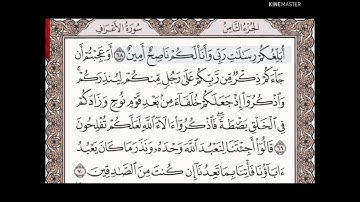 KINEMASTER
الجزء الثامن
سورة الأعراف
أُبَلِّغُكُمْ رِسَالَاتِ رَبِّي وَأَنَا لَكُمْ نَاصِحٌ أَمِينٌ ٦٨ أَوَعَجِبْتُمْ أَن
جَاءَكُمْ ذِكْرٌ مِّن رَّبِّكُمْ عَلَىٰ رَجُلٍ مِّنكُمْ لِيُنذِرَكُمْ
وَاذْكُرُوا إِذْ جَعَلَكُمْ خُلَفَاءَ مِن بَعْدِ قَوْمِ نُوحٍ وَزَادَكُمْ
فِي الْخَلْقِ بَصْۜطَةً فَاذْكُرُوا آلَاءَ اللَّهِ لَعَلَّكُمْ تُفْلِحُونَ
٦٩ قَالُوا أَجِئْتَنَا لِنَعْبُدَ اللَّهَ وَحْدَهُ وَنَذَرَ مَا كَانَ يَعْبُدُ
ءَابَاؤُنَا فَأْتِنَا بِمَا تَعِدُنَا إِن كُنتَ مِنَ الصَّادِقِينَ ٧٠